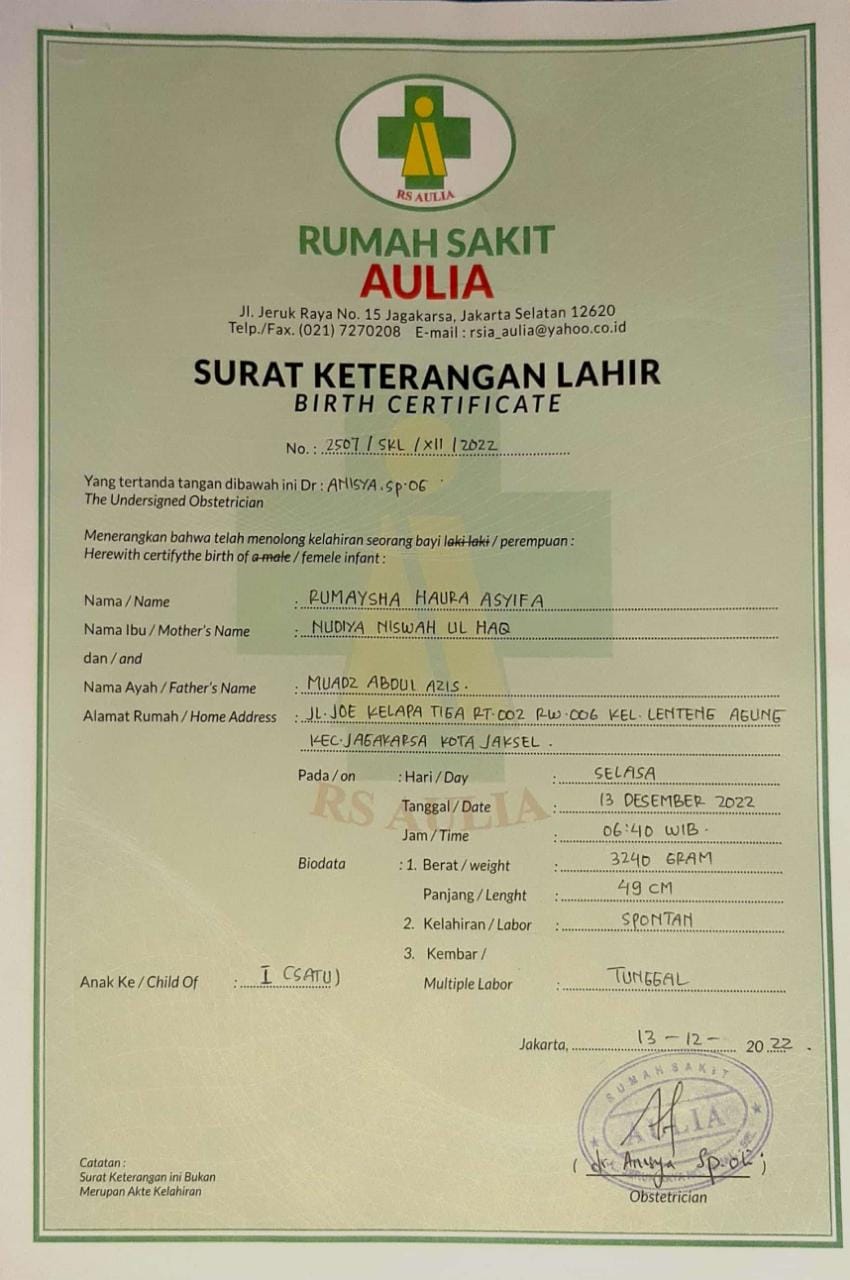 RS AULIA
RUMAH SAKIT
AULIA
Jl. Jeruk Raya No. 15 Jagakarsa, Jakarta Selatan 12620
Telp./Fax. (021) 7270208 E-mail : rsia_aulia@yahoo.co.id
SURAT KETERANGAN LAHIR
BIRTH CERTIFICATE
No. : 2507 / SKL / XII / 2022
Yang tertanda tangan dibawah ini Dr : ANISYA.Sp.OG
The Undersigned Obstetrician
Menerangkan bahwa telah menolong kelahiran seorang bayi laki laki / perempuan :
Herewith certifythe birth of a male / femele infant :
Nama / Name : RUMAYSHA HAURA ASYIFA
Nama Ibu / Mother's Name : NUDIYA NISWAH UL HAQ
dan / and
Nama Ayah / Father's Name : MUADZ ABDUL AZIS.
Alamat Rumah / Home Address : JL. JOE KELAPA TIGA RT.002 RW.006 KEL. LENTENG AGUNG
KEC.JAGAKARSA KOTA JAKSEL .
Pada / on : Hari / Day : SELASA
RS AULIA
Tanggal / Date : 13 DESEMBER 2022
Jam / Time : 06:40 WIB.
Biodata : 1. Berat / weight : 3240 GRAM
Panjang / Lenght : 49 CM
2. Kelahiran / Labor : SPONTAN
3. Kembar /
Anak Ke / Child Of : I (SATU) Multiple Labor : TUNGGAL
Jakarta, 13 - 12 - 20 22 .
RUMAH SAKIT
AULIA
( dr. Anisya Sp.OG )
Obstetrician
Catatan :
Surat Keterangan ini Bukan
Merupan Akte Kelahiran